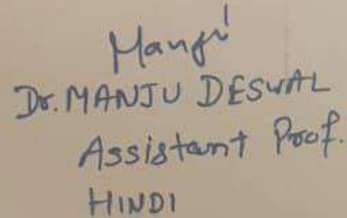 Manju
Dr. MANJU DESWAL
Assistant Prof.
HINDI